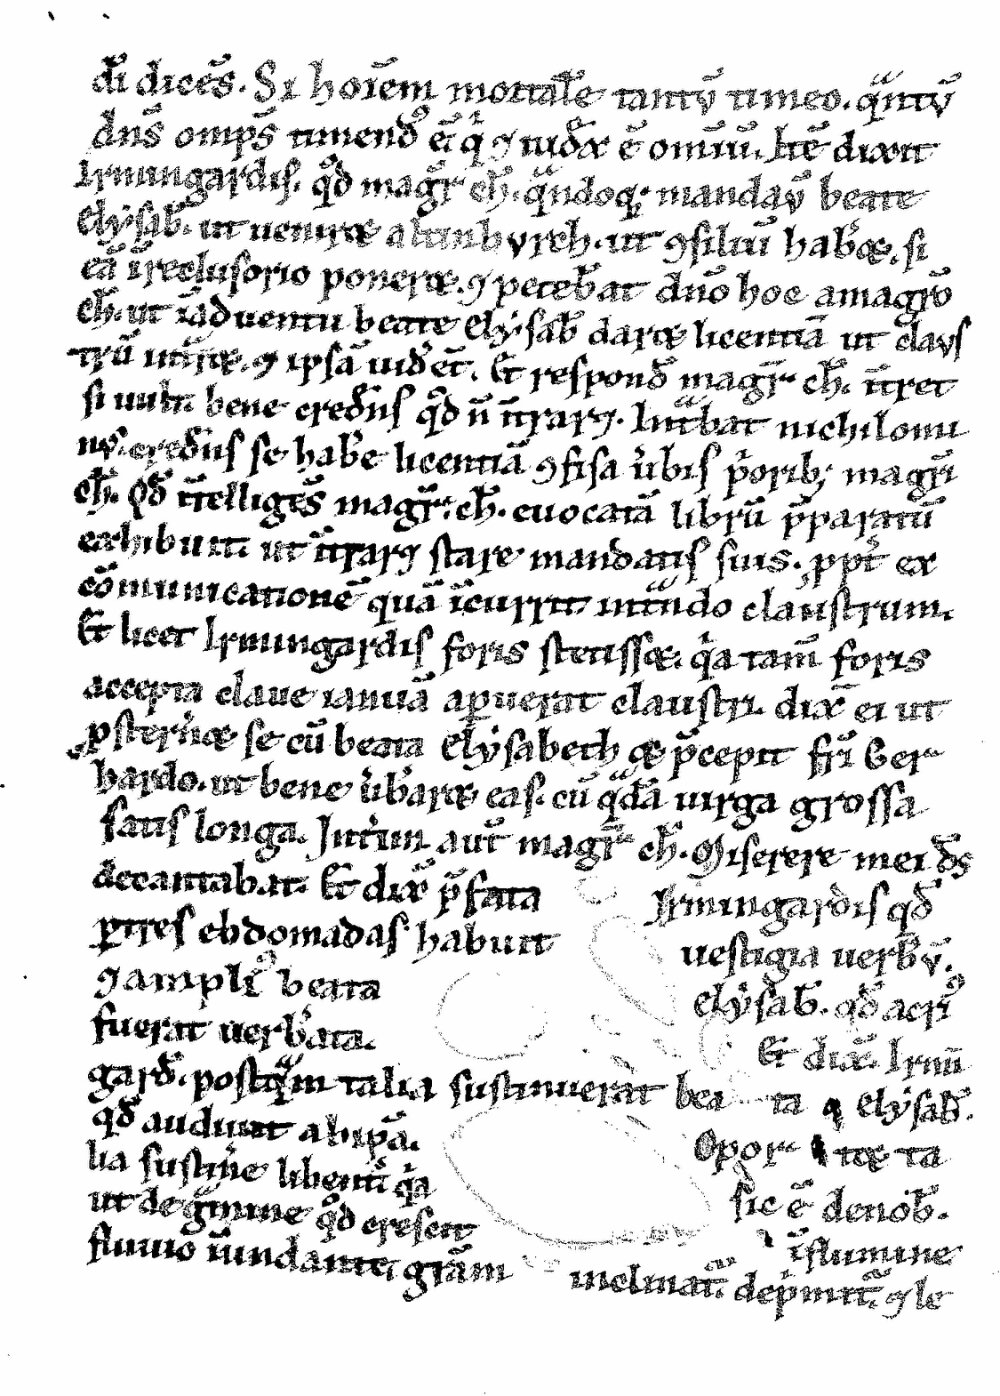 dī dicēs. Si hoīem mortalē tantū timeo. qͣntū
dn̄s omp̄s timend᷒ ē q̇ ꝯ iud᷒x ē omīū. Itē dixit
Irmingardis. qd᷒ magr̄ ch̄. qͣndoqꝫ mandaū beate
Elẏsab̄. ut uenirꝫ altinbvrch. ut ꝯsiliū hab̄ꝫ. si
eā ī reclusorio ponerꝫ. ꝯ peteb̄at dn̄o hoc a magr̄o
ch̄. ut ī aduentu beate Elẏsab̄ darꝫ licentiā ut claus
trū int̄rꝫ. ꝯ ipsā uid᷒et. Et respond᷒ magr̄. ch̄. īt̄ret
si uult. bene cred᷒ns qd᷒ n̄ īt̄rarꝫ. Int̄bat nichilomi
nꝰ. cred᷒ns se hab̄e licentiā ꝯfisa ūbis p̄oribꝫ magr̄i
ch̄. Qd᷒ īt̄elligēs magr̄. ch̄. euocatā librū p̄paratū
exhibuit. ut īt̄rarꝫ stare mandatis suis. ꝓpt̄ ex
cōmunicationē quā īcurrit intͣndo claustrum.
Et licet Irmingardis foris stetissꝫ. qͥa tam̄ foris
accepta claue ianuā aꝑuerat claustri. dix̄ ei ut
ꝓstern̄ꝫ se cū beata Elẏsabeth ꝫ p̄cepit fr̄i Ger
hardo. ut bene ūb̄arꝫ eas. cū qͣdā uirga grossa
satis longa. Int̄im aut̄ magr̄ ch̄. Miserere mei ds̄
decantabat. Et dix̄ p̄fata Irmingardis qd᷒
ꝑ tres ebdomadas habuit uestigia uerb̄ū.
ꝯ ampliꝰ beata Elẏsab̄. qd᷒ acriꝰ
fuerat uerb̄ata. Et dix̄. Irmī
gard᷒. postqͣm talia sustinuerat bea ta Elẏsab̄.
qd᷒ audiuit ab ip̄a. Opor tꝫ ta
lia sustin̄e libent̄ qͥa sic ē de nob̄.
ut de gͣmine qd᷒ crescit ī flumine
fluuio īundante gͣm inclinat̄. dep̄mit̄. ꝯ le